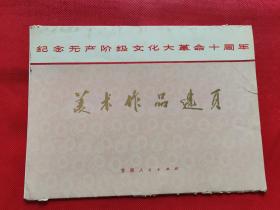 纪念无产阶级文化大革命十周年
美术作品选页
人民出版社